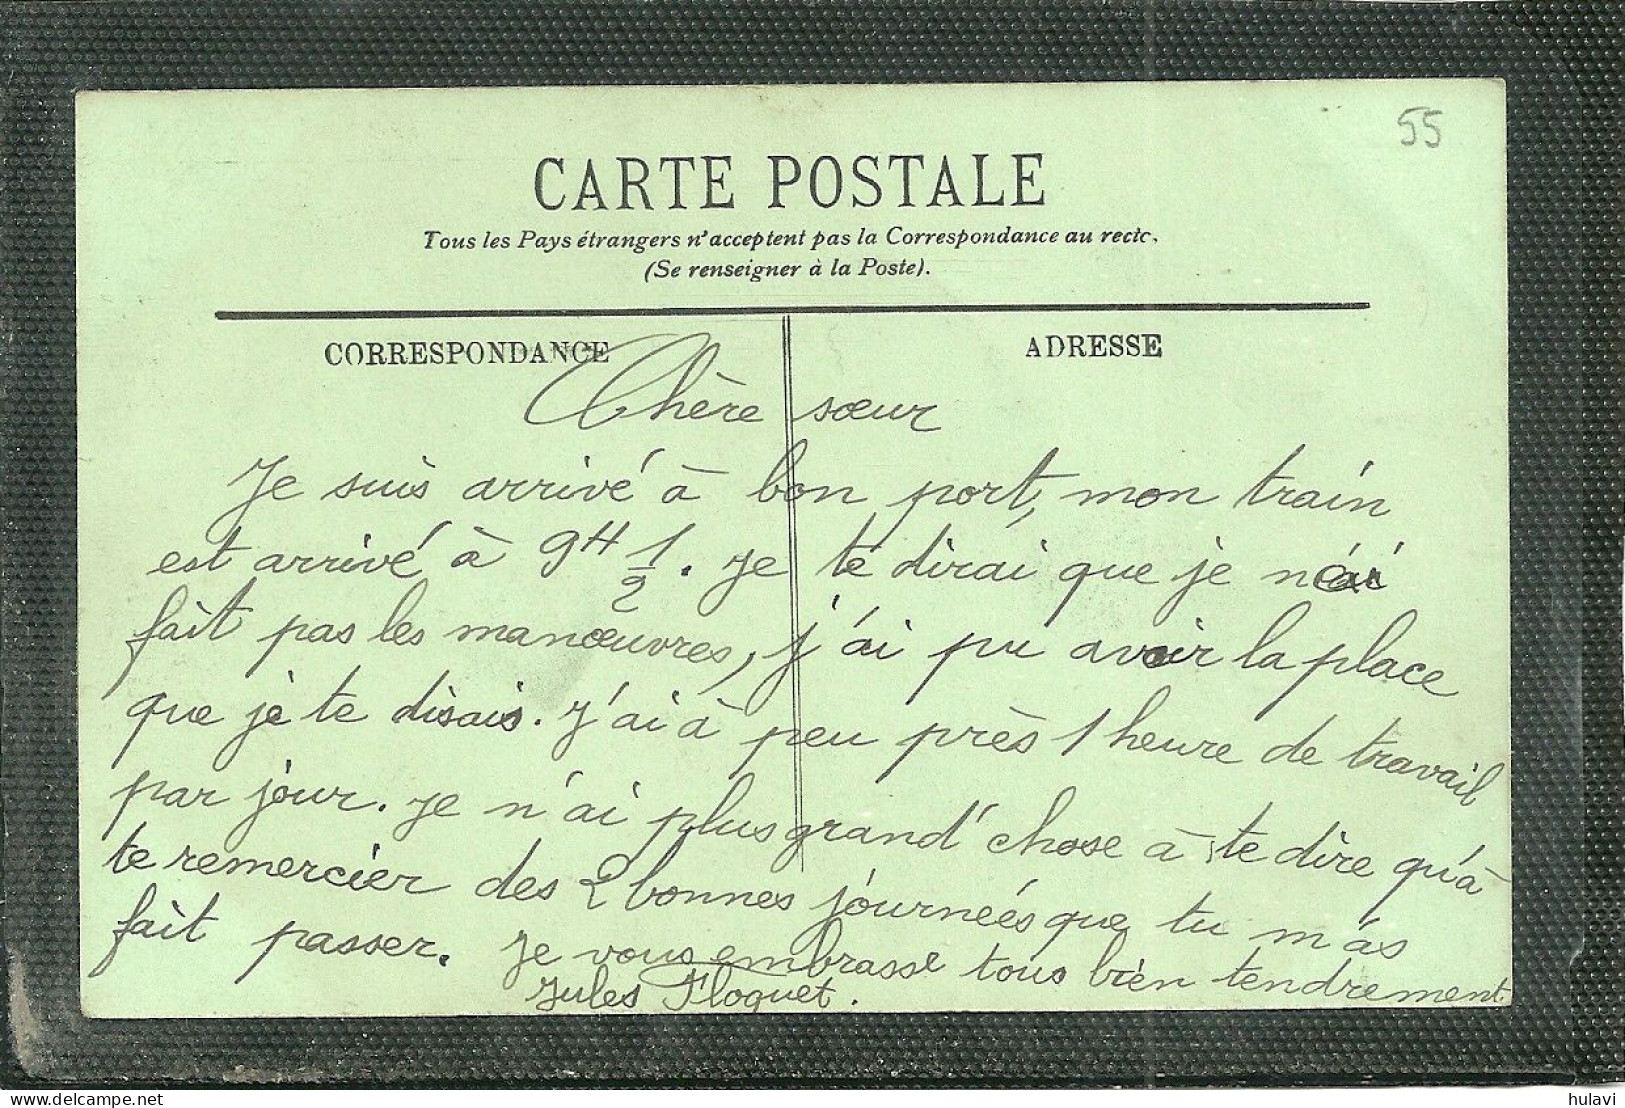 55
CARTE POSTALE
Tous les Pays étrangers n'acceptent pas la Correspondance au recto.
(Se renseigner à la Poste).
CORRESPONDANCE
ADRESSE
Chère sœur
Je suis arrivé à bon port, mon train
est arrivé à 9H 1/2. Je te dirai que je n'ai
fait pas les manœuvres, j'ai pu avoir la place
que je te disais. J'ai à peu près 1 heure de travail
par jour. Je n'ai plus grand'chose à te dire qu'à
te remercier des 2 bonnes journées que tu m'as
fait passer. Je vous embrasse tous bien tendrement
Jules Floquet.
hulavi
delcampe.net